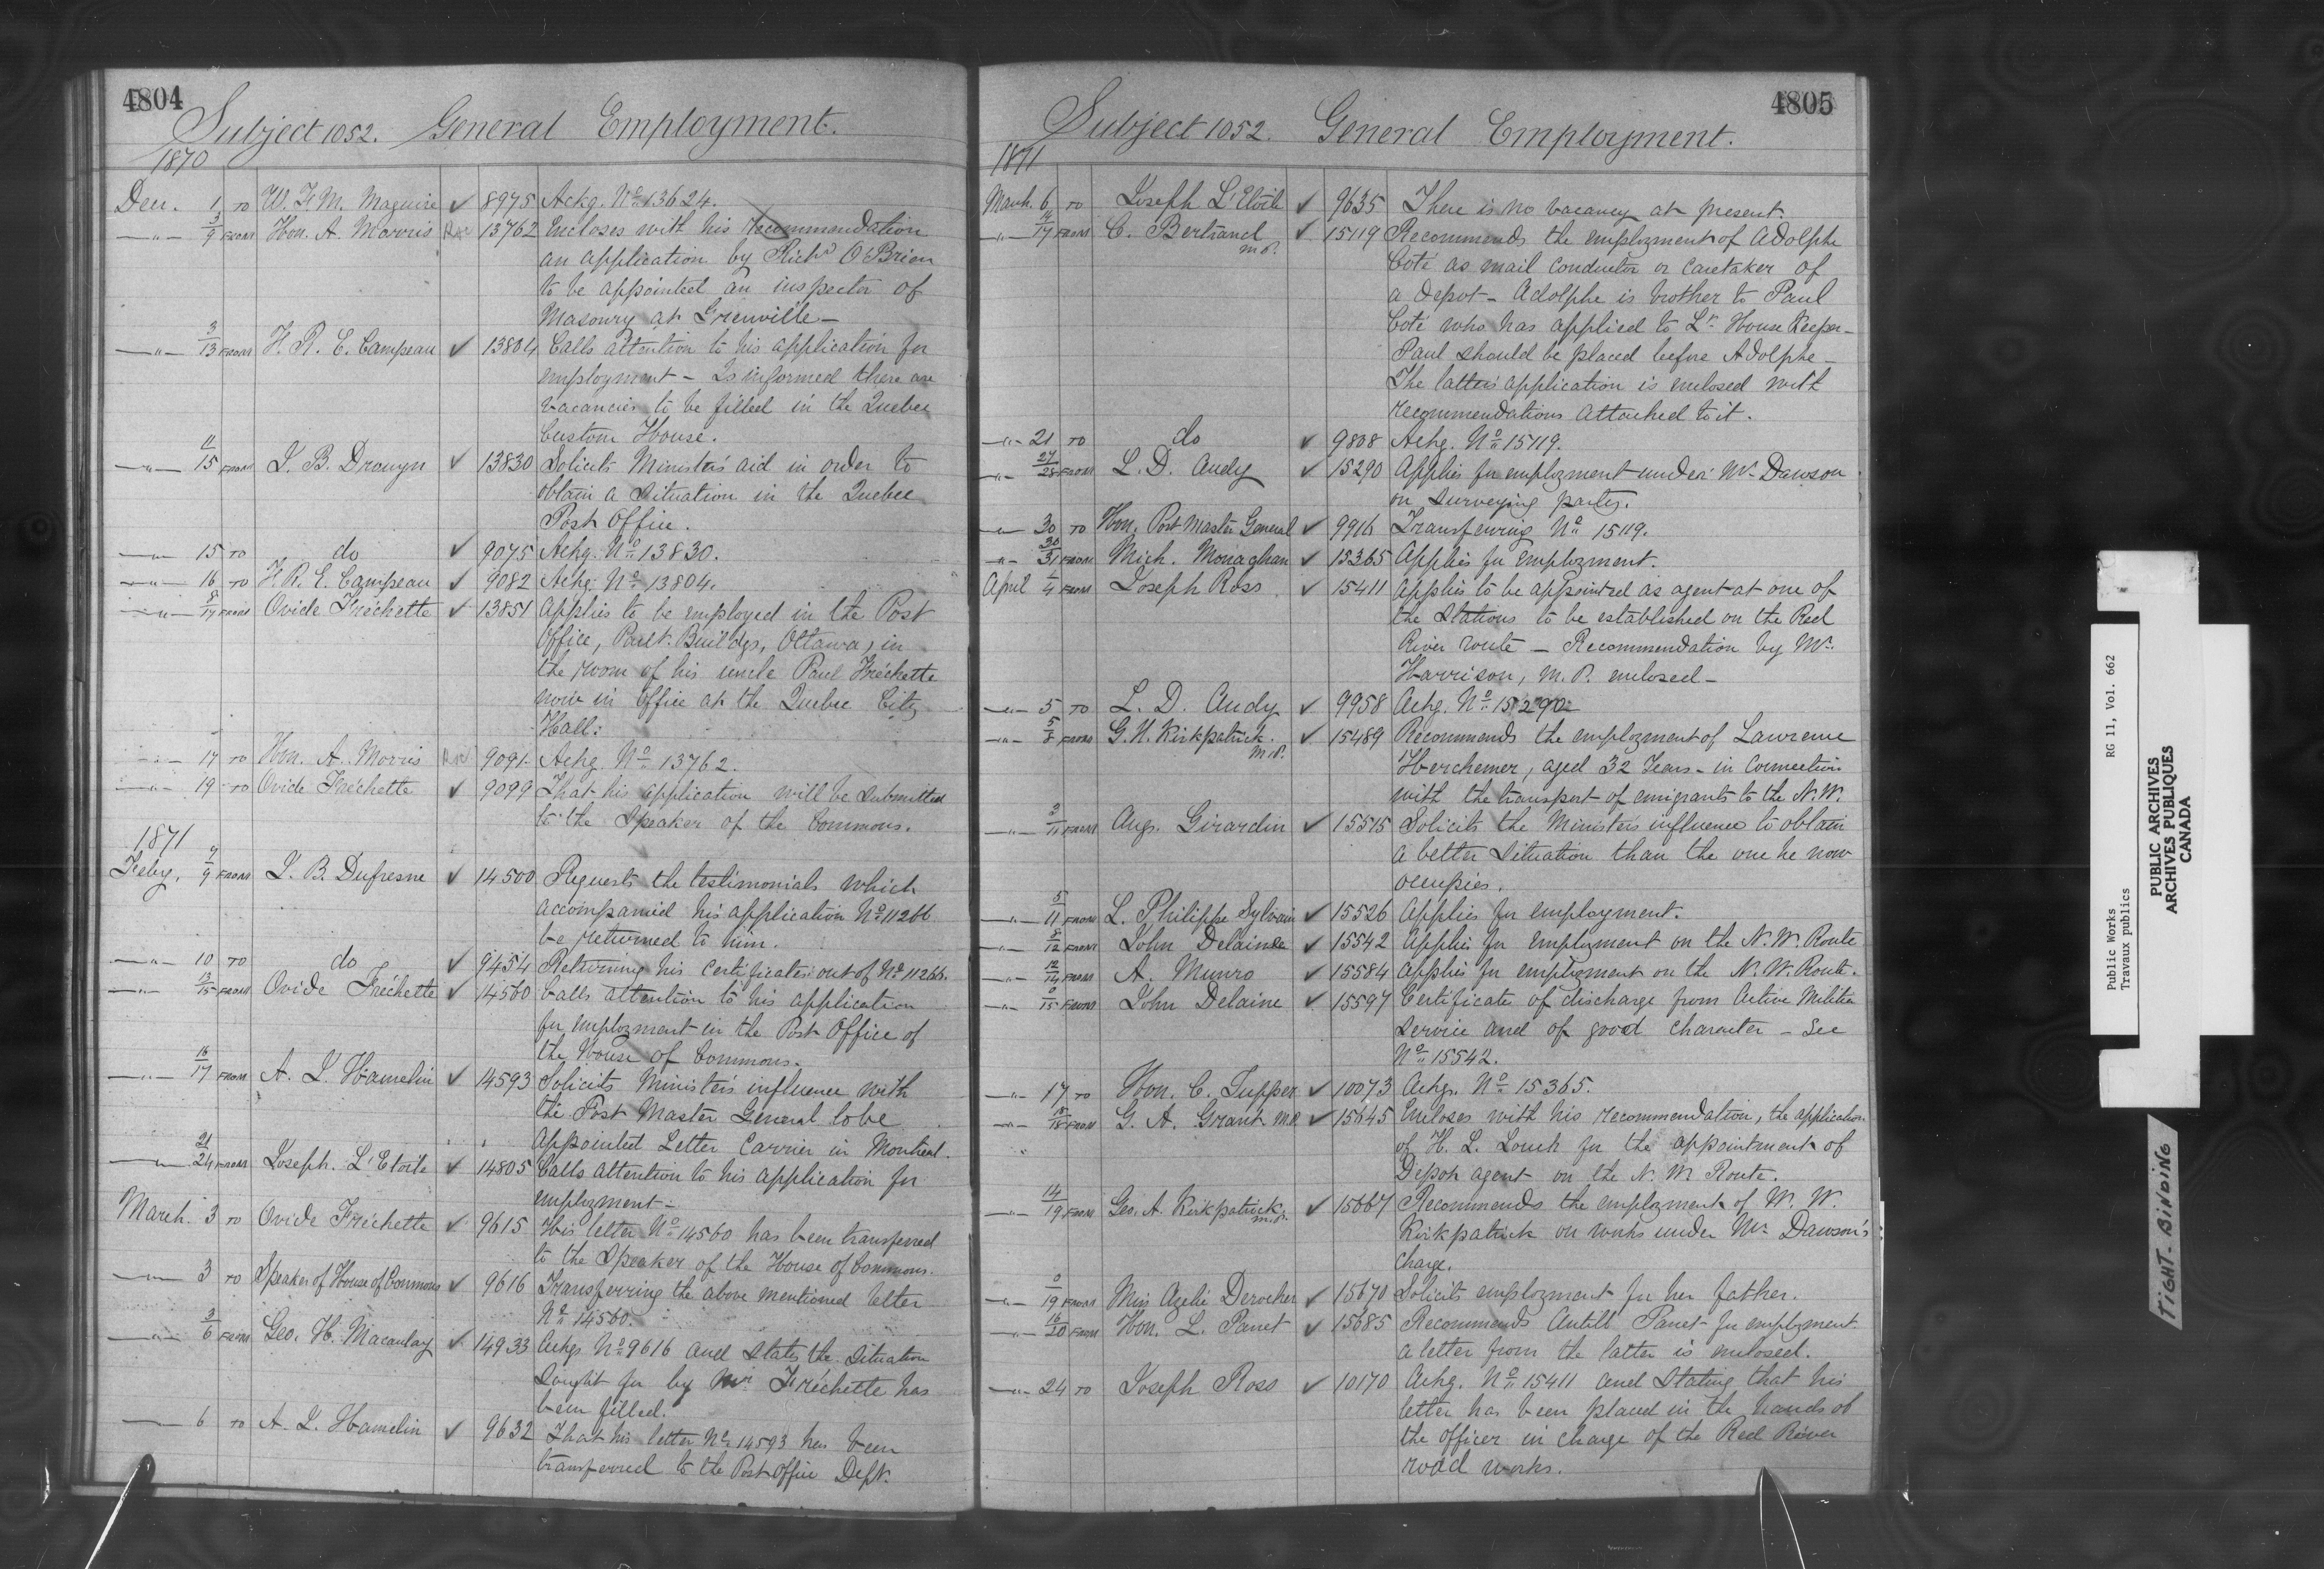 4804
Subject 1052. General Employment.
1870
Dec. 1 TO W. F. M. Maguire ✓ 8975 Ackg. No. 13624.
—"— 3/9 FROM Hon. A. Morris 13762 Encloses with his recommendation
an application by Richd O'Brien
to be appointed an inspector of
Masonry at Grenville—
—"— 3/13 FROM F. R. E. Campeau ✓ 13804 Calls attention to his application for
employment – Is informed there are
vacancies to be filled in the Quebec
Custom House.
—"— 11/15 FROM J. B. Drouyn ✓ 13830 Solicits Minister's aid in order to
obtain a situation in the Quebec
Post Office.
—"— 15 TO do ✓ 9075 Ackg. No. 13830.
—"— 16 TO F. R. E. Campeau ✓ 9082 Ackg. No. 13804.
—"— 8/17 FROM Ovide Fréchette ✓ 13851 Applies to be employed in the Post
Office, Parlt. Buildgs, Ottawa, in
the room of his uncle Paul Fréchette
now in office at the Quebec City
Hall:
—"— 17 TO Hon. A. Morris 9091 Ackg. No. 13762.
—"— 19 TO Ovide Fréchette ✓ 9099 That his application will be submitted
to the Speaker of the Commons.
1871
Feby. 7/9 FROM J. B. Dufresne ✓ 14500 Requests the testimonials which
accompanied his application No. 11266
be returned to him.
—"— 10 TO do ✓ 9454 Returning his certificates out of No. 11266.
—"— 13/15 FROM Ovide Fréchette ✓ 14560 Calls attention to his application
for employment in the Post Office of
the House of Commons.
—"— 16/17 FROM A. J. Hamelin ✓ 14593 Solicits Minister's influence with
the Post Master General to be
appointed Letter Carrier in Montreal.
—"— 21/24 FROM Joseph L'Etoile ✓ 14805 Calls attention to his application for
employment—
March 3 TO Ovide Fréchette ✓ 9615 His letter No. 14560 has been transferred
to the Speaker of the House of Commons.
—"— 3 TO Speaker of House of Commons ✓ 9616 Transferring the above mentioned letter
No. 14560.
—"— 3/6 FROM Geo. H. Macaulay ✓ 14933 Ackgs No. 9616 and states the situation
sought for by Mr Fréchette has
been filled.
—"— 6 TO A. J. Hamelin ✓ 9632 That his letter No. 14593 has been
transferred to the Post Office Dept.
4805
Subject 1052. General Employment.
1871
March 6 TO Joseph L'Etoile ✓ 9635 There is no vacancy at present.
—"— 14/17 FROM C. Bertrand M.P. ✓ 15119 Recommends the employment of Adolphe
Coté as mail conductor or caretaker of
a Depot – Adolphe is brother to Paul
Coté who has applied to Ln. House Keeper –
Paul should be placed before Adolphe –
The latter's application is enclosed with
recommendations attached to it.
—"— 21 TO do ✓ 9808 Ackg. No. 15119.
—"— 27/28 FROM L. D. Audy ✓ 15290 Applies for employment under Mr. Dawson
on surveying party.
—"— 30 TO Hon. Post Master General ✓ 9916 Transferring No. 15119.
—"— 30/31 FROM Mich. Monaghan ✓ 15365 Applies for employment.
April 1/4 FROM Joseph Ross ✓ 15411 Applies to be appointed as agent at one of
the stations to be established on the Red
River route – Recommendation by Mr.
Harrison, M.P. enclosed –
—"— 5 TO L. D. Audy ✓ 9958 Ackg. No. 15290
—"— 5/8 FROM G. A. Kirkpatrick M.P. ✓ 15489 Recommends the employment of Lawrence
Herchemer, aged 32 Years – in connection
with the transport of emigrants to the N.W.
—"— 3/11 FROM Aug. Girardin ✓ 15515 Solicits the Minister's influence to obtain
a better situation than the one he now
occupies.
—"— 5/11 FROM L. Philippe Sylvain ✓ 15526 Applies for employment.
—"— 8/12 FROM John Delaine ✓ 15542 Applies for employment on the N.W. Route
—"— 12/14 FROM A. Munro ✓ 15584 Applies for employment on the N.W. Route.
—"— 0/15 FROM John Delaine ✓ 15597 Certificate of discharge from Active Militia
service and of good character – See
No. 15542.
—"— 17 TO Hon. C. Tupper ✓ 10073 Ackg. No. 15365.
—"— 18/18 FROM G. A. Grant M.P. ✓ 15645 Encloses with his recommendation, the application
of H. L. Louck for the appointment of
Depot agent on the N.W. Route.
—"— 14/19 FROM Geo. A. Kirkpatrick M.P. ✓ 15667 Recommends the employment of W. W.
Kirkpatrick on works under Mr Dawson's
charge.
—"— 0/19 FROM Miss Azelie Derocher ✓ 15670 Solicits employment for her father.
—"— 16/20 FROM Hon. L. Panet ✓ 15685 Recommends Antill Panet for employment.
a letter from the latter is enclosed.
—"— 24 TO Joseph Ross ✓ 10170 Ackg. No. 15411 and stating that his
letter has been placed in the hands of
the officer in charge of the Red River
road works.
Public Works RG 11, Vol. 662
Travaux publics
PUBLIC ARCHIVES
ARCHIVES PUBLIQUES
CANADA
TIGHT BINDING